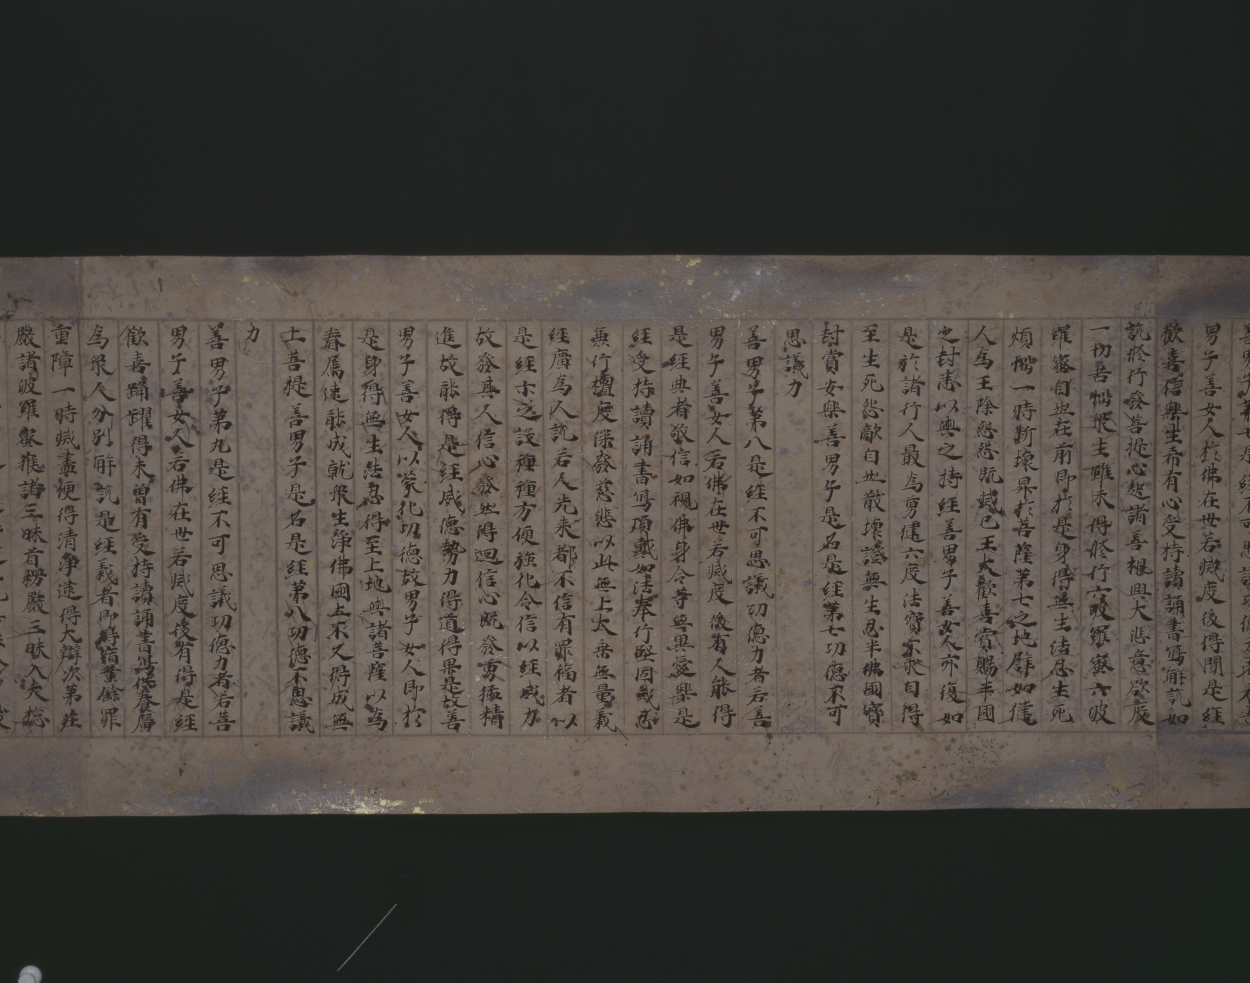 男子善女人於佛在世若滅度後得聞是經
歡喜信樂生希有心受持讀誦書寫解說如
說修行發菩提心起諸善根興大悲意欲度
一切苦惱眾生雖未得修行六波羅蜜六波
羅蜜自然在前即於是身得無生法忍生死
煩惱一時斷壞昇於菩薩第七之地譬如健
人為王除怨怨既滅已王大歡喜賞賜半國
之封悉以與之持經善男子善女人亦復如
是於諸行人最為勇健六度法寶不求自得
至生死怨敵自然散壞證無生忍半佛國寶
封賞安樂善男子是名是經第七功德不可
思議力
善男子第八是經不可思議功德力者若善
男子善女人若佛在世若滅度後有人能得
是經典者敬信如視佛身令等無異愛樂是
經受持讀誦書寫頂戴如法奉行堅固戒忍
兼行檀度深發慈悲以此無上大乘無量義
經廣為人說若人先來都不信有罪福者以
是經示之設種種方便強化令信以經威力
故發其人信心欻然得迴信心既發勇猛精
進故能得是經威德勢力得道得果是故善
男子善女人以蒙化功德故男子女人即於
是身得無生法忍得至上地與諸菩薩以為
眷屬速能成就眾生淨佛國土不久得成無
上菩提善男子是名是經第八功德不思議
力
善男子第九是經不可思議功德力者若善
男子善女人若佛在世若滅度後有得是經
歡喜踊躍得未曾有受持讀誦書寫供養廣
為眾人分別解說是經義者即得宿業餘罪
重障一時滅盡便得清淨逮得大辯次第莊
嚴諸波羅蜜獲諸三昧首楞嚴三昧入大總